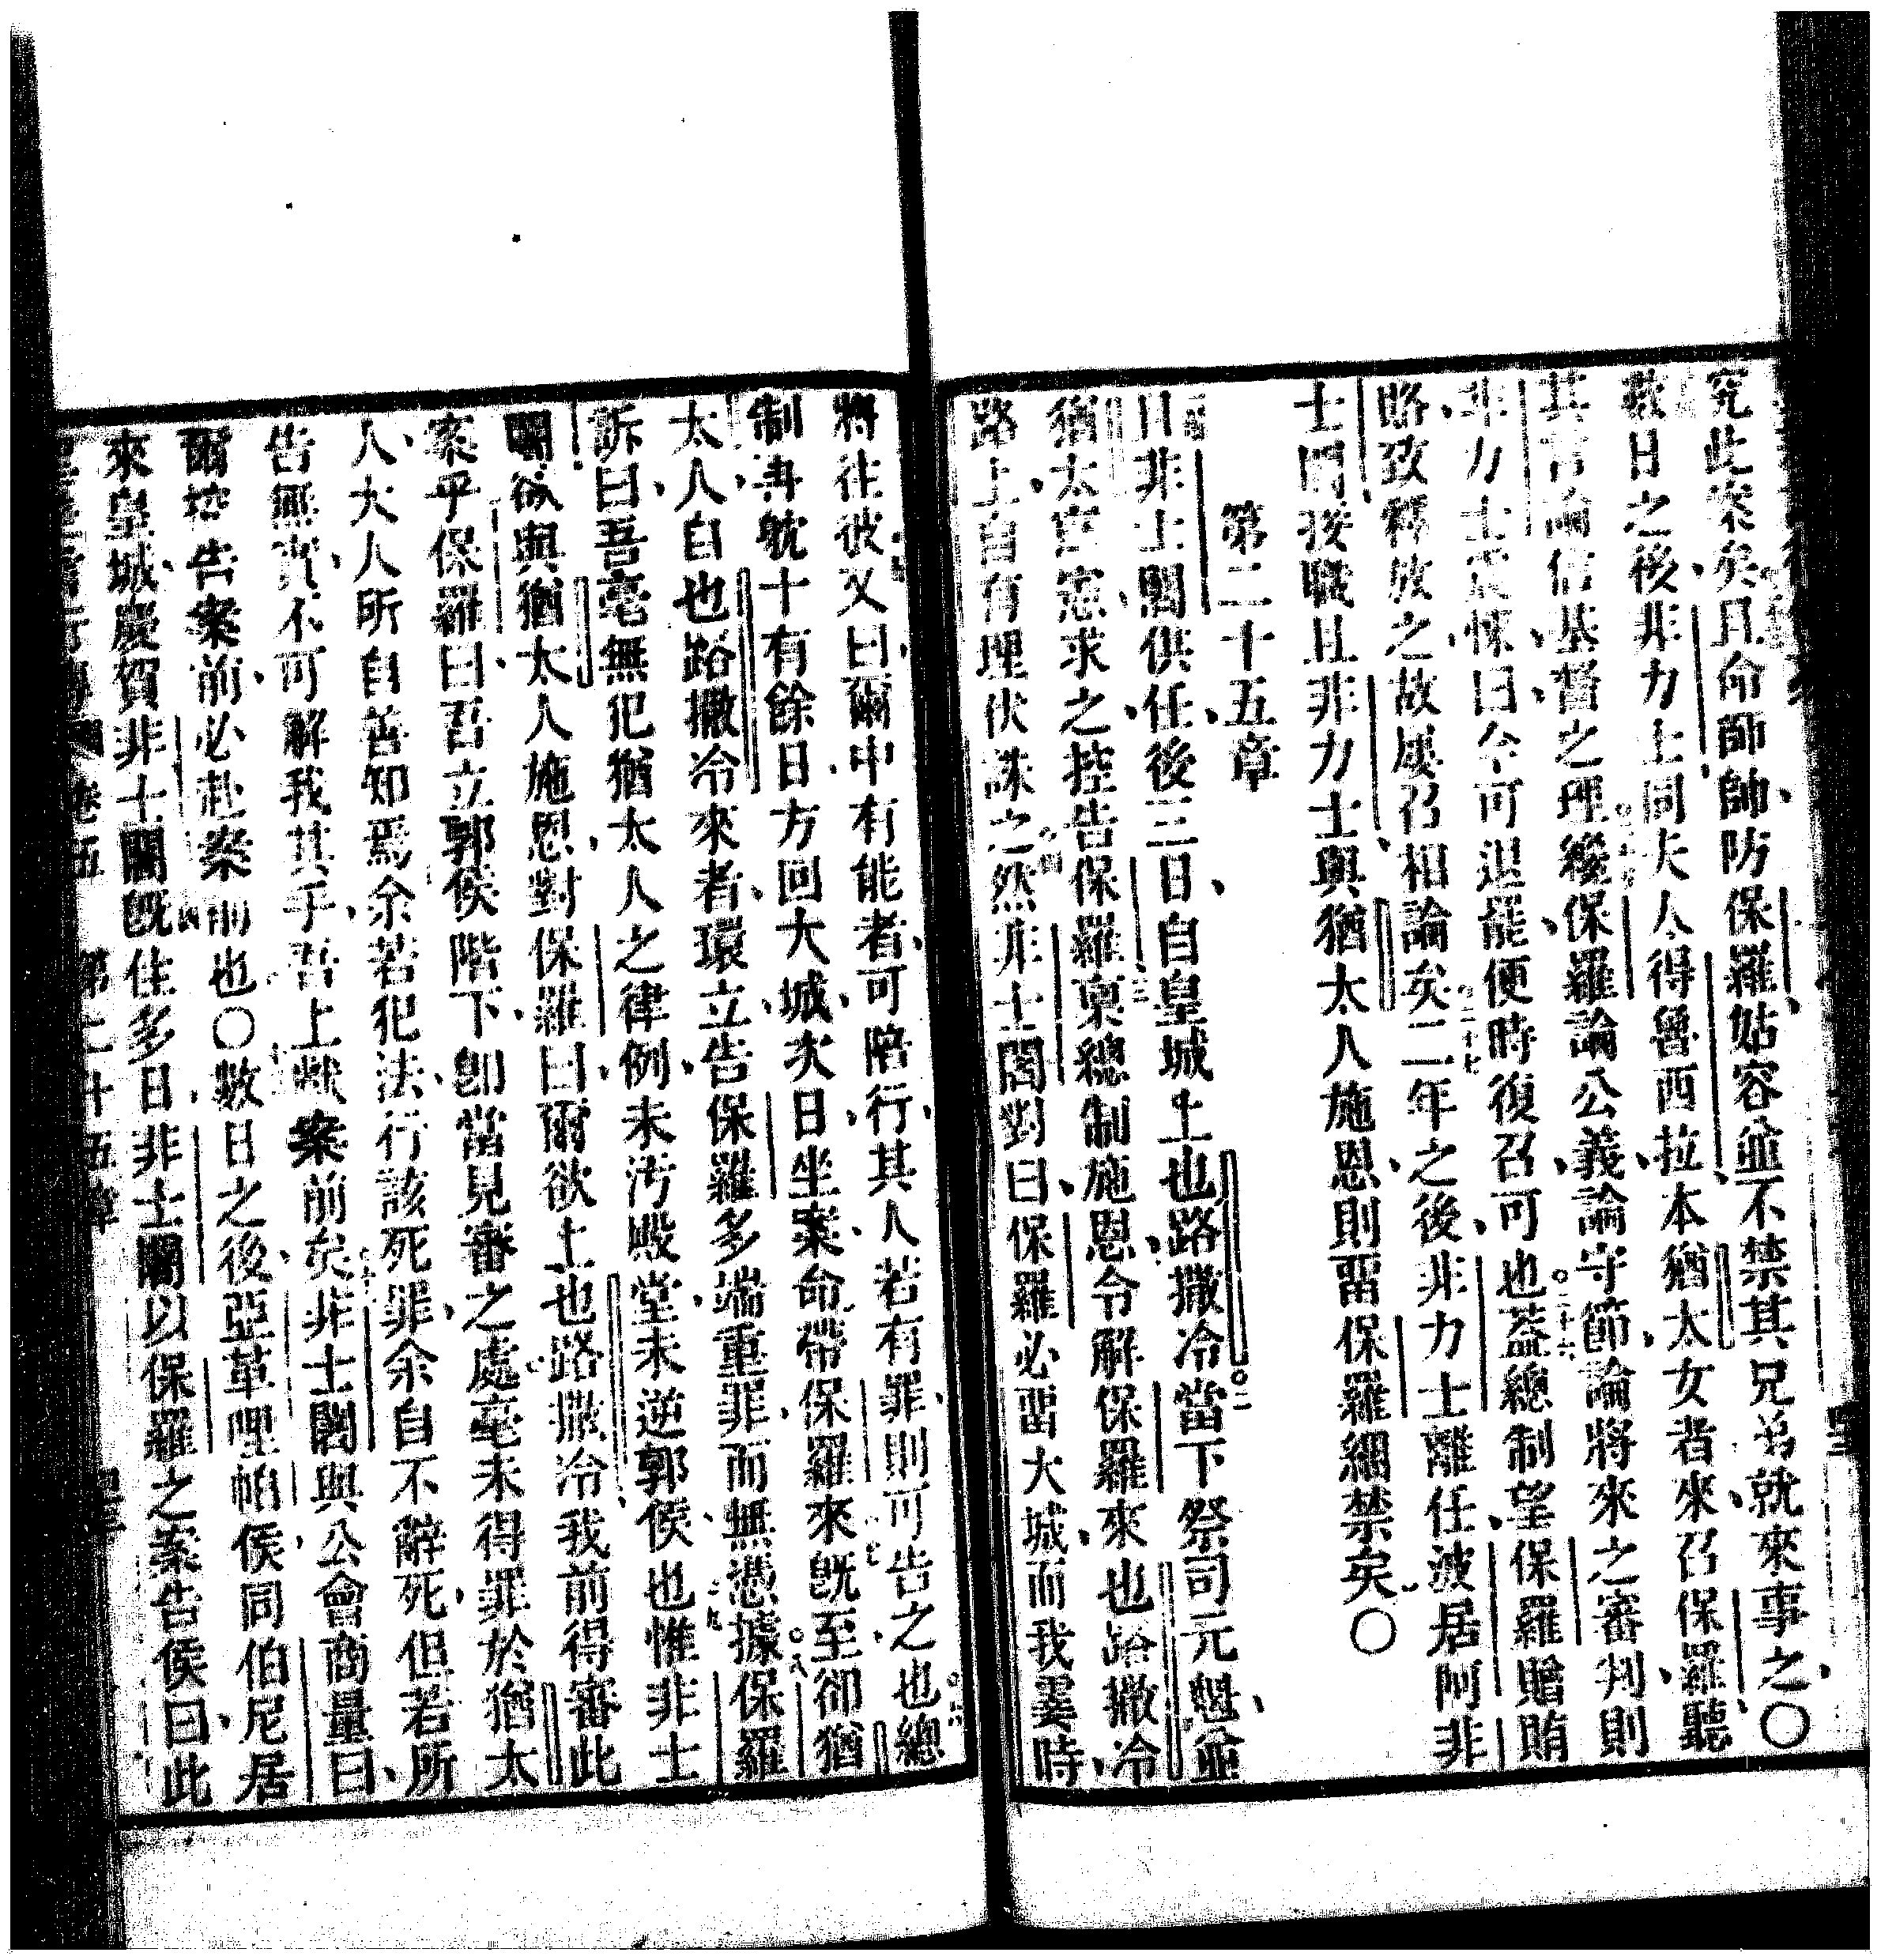 究此案矣且命師帥防保羅姑容並不禁其兄弟就來事之〇
數日之後非力士同夫人得魯西拉本猶太女者來召保羅聽
其言論信基督之理後保羅論公義論守節論將來之審判則
非力士震悚曰今可退罷便時復召可也蓋總制望保羅贈賄
賂致釋放之故屢召相論矣二年之後非力士離任波居阿非
士闍接職且非力士與猶太人施恩則留保羅綑禁矣〇
第二十五章
且非士闍供任後三日自皇城上也路撒冷當下祭司元魁並
猶太官憲求之控告保羅稟總制施恩令解保羅來也路撒冷
路上自有理伏誅之然非士闍對曰保羅必留大城而我霎時
將往彼又曰爾中有能者可陪行其人若有罪則可告之也總
制再躭十有餘日方回大城次日坐案命帶保羅來既至卻猶
太人自也路撒冷來者環立告保羅多端重罪而無憑據保羅
訴曰吾毫無犯猶太人之律例未汚毀堂未逆郭侯也惟非士
闍欲與猶太人施恩對保羅曰爾欲上也路撒冷我前得審此
案乎保羅曰吾立郭侯階下卽當見審之處毫未得罪於猶太
人大人所自善知焉余若犯法行該死罪余自不辭死但若所
告無實不可解我其手吾上獻案前矣非士闍與公會商量曰
爾控告案前必赴案前也〇數日之後亞革哩帕侯同伯尼居
來皇城慶賀非士闍既住多日非士闍以保羅之案告侯曰此
卷五 第二十五章